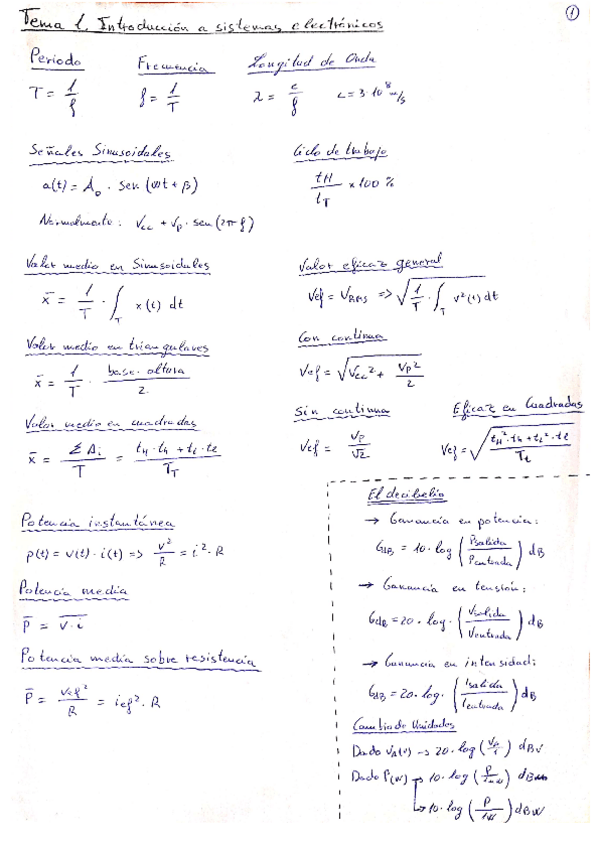 Tema 1. Introducción a sistemas electrónicos
1
Periodo
T = 1/f
Frecuencia
f = 1/T
Longitud de Onda
λ = c/f   c = 3·10⁸ m/s
Señales Sinusoidales
a(t) = A₀ · sen (ωt + β)
Normalmente: Vcc + Vp · sen (2π f)
Ciclo de trabajo
tH/tT × 100 %
Valor medio en Sinusoidales
x̄ = 1/T · ∫T x(t) dt
Valor medio en triangulares
x̄ = 1/T · base·altura/2
Valor medio en cuadradas
x̄ = ΣAi/T = tH·tH + tL·tL/TT
Valor eficaz general
Vef = VRMS => √(1/T · ∫T v²(t) dt)
Con continua
Vef = √(Vcc² + Vp²/2)
Sin continua
Vef = Vp/√2
Eficaz en Cuadradas
Vef = √(tH²·tH + tL²·tL/Tt)
Potencia instantánea
p(t) = v(t) · i(t) => v²/R = i² · R
Potencia media
P̄ = v·i
Potencia media sobre resistencia
P̄ = Vef²/R = ief² · R
El decibelio
→ Ganancia en potencia:
GdB = 10 · log (Psalida/Pentrada) dB
→ Ganancia en tensión:
GdB = 20 · log (Vsalida/Ventrada) dB
→ Ganancia en intensidad:
GdB = 20 · log · (Isalida/Ientrada) dB
Cambio de Unidades
Dado VA(V) → 20 · log (Vp/1) dBV
Dado P(W) → 10 · log (P/1mW) dBm
→ 10 · log (P/1W) dBW